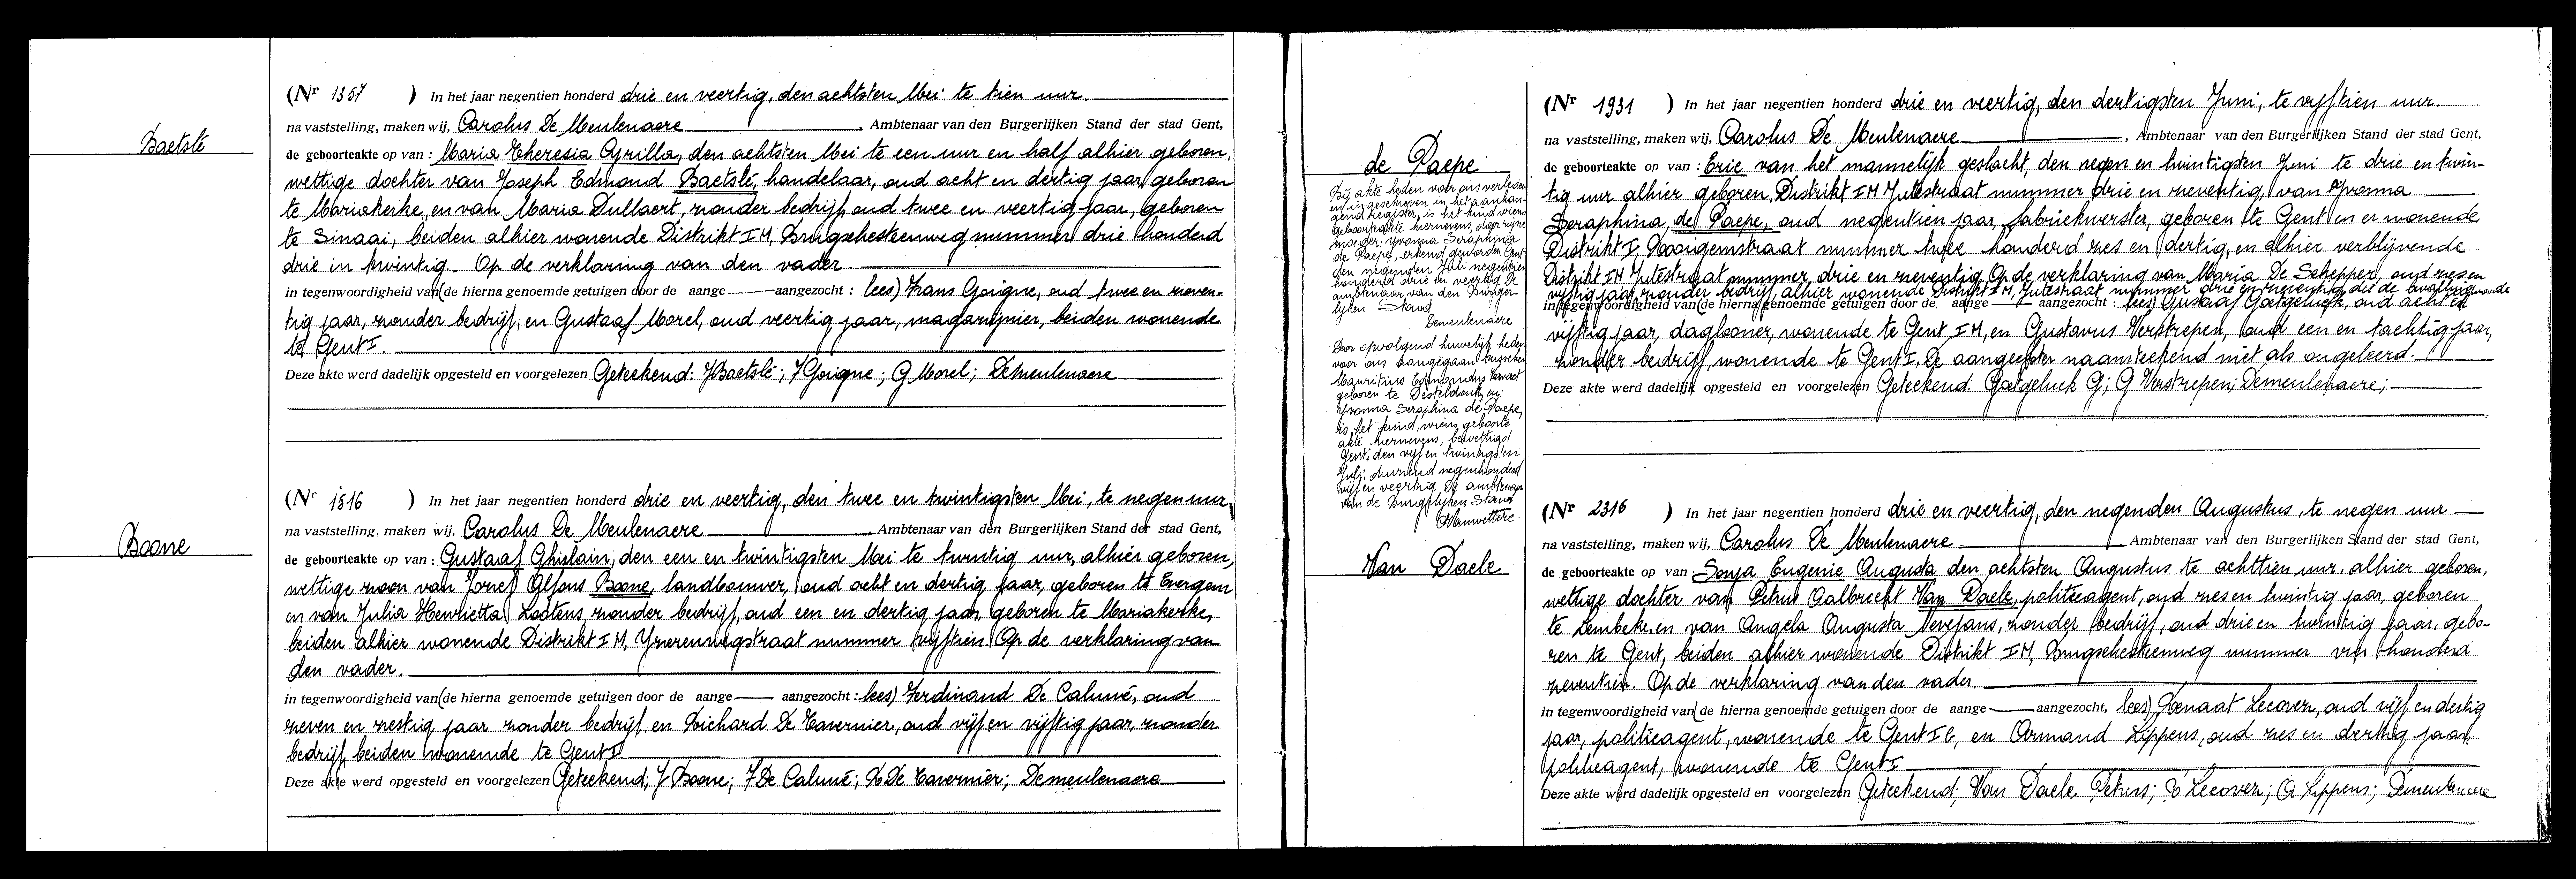 Baetslé
(Nr 1357 ) In het jaar negentien honderd drie en veertig, den achtsten Mei te tien uur.
na vaststelling, maken wij, Carolus De Meulenaere, Ambtenaar van den Burgerlijken Stand der stad Gent,
de geboorteakte op van : Maria Theresia Cyrilla, den achtsten Mei te een uur en half alhier geboren,
wettige dochter van Joseph Edmond Baetslé, handelaar, oud acht en dertig jaar, geboren
te Mariakerke, en van Maria Dullaert, zonder bedrijf, oud twee en veertig jaar, geboren
te Sinaai, beiden alhier wonende Distrikt I M, Brugschesteenweg nummer drie honderd
drie in twintig. Op de verklaring van den vader.
in tegenwoordigheid van (de hierna genoemde getuigen door de aange — aangezocht : lees) Frans Goigne, oud twee en zeven-
tig jaar, zonder bedrijf, en Gustaaf Morel, oud veertig jaar, magazijnier, beiden wonende
te Gent I.
Deze akte werd dadelijk opgesteld en voorgelezen Geteekend: J Baetslé; F Goigne; G Morel; Demeulenaere
Boone
(Nr 1516 ) In het jaar negentien honderd drie en veertig, den twee en twintigsten Mei, te negen uur,
na vaststelling, maken wij, Carolus De Meulenaere Ambtenaar van den Burgerlijken Stand der stad Gent,
de geboorteakte op van : Gustaaf Ghislain, den een en twintigsten Mei te twintig uur, alhier geboren,
wettige zoon van Jozef Alfons Boone, landbouwer, oud acht en dertig jaar, geboren te Evergem
en van Julia Henrietta Lootens, zonder bedrijf, oud een en dertig jaar, geboren te Mariakerke,
beiden alhier wonende Distrikt I M, Ijzerenwegstraat nummer vijftien. Op de verklaring van
den vader.
in tegenwoordigheid van (de hierna genoemde getuigen door de aange — aangezocht : lees) Ferdinand De Caluwé, oud
zeven en zestig jaar zonder bedrijf, en Richard De Tavernier, oud vijf en vijftig jaar, zonder
bedrijf, beiden wonende te Gent I.
Deze akte werd opgesteld en voorgelezen Geteekend; J Boone; F De Caluwé; R De Tavernier; Demeulenaere
de Paepe
Bij akte heden voor ons verleden
en ingeschreven in het aanhan-
gend Register, is het kind wiens
geboorteakte hiernevens, door zijne
moeder: Yvonna Seraphina
de Paepe, erkend geworden Gent
den negenden Juli negentien
honderd drie en veertig De
ambtenaar van den Burger-
lijken Stand
Demeulenaere
Door opvolgend huwelijk heden
voor ons aangegaan tusschen
Mauritius Edmondus
geboren te Desteldonk, en
Yvonna Seraphina de Paepe,
is het kind, wiens geboorte
akte hiernevens, bewettigd
Gent, den vijf en twintigsten
Juli, duizend negenhonderd
vijf en veertig De ambtenaar
van de Burgelijken Stand
(Nr 1931 ) In het jaar negentien honderd drie en veertig, den dertigsten Juni, te vijftien uur.
na vaststelling, maken wij, Carolus De Meulenaere, Ambtenaar van den Burgerlijken Stand der stad Gent,
de geboorteakte op van : Eric van het mannelijk geslacht, den negen en twintigsten Juni te drie en twin-
tig uur alhier geboren, Distrikt I M Jutestraat nummer drie en zeventig, van Yvonna
Seraphina, de Paepe, oud negentien jaar, fabriekwerkster, geboren te Gent en er wonende
Distrikt I, Rooigemstraat nummer twee honderd zes en dertig, en alhier verblijvende
Distrikt I M Jutestraat nummer drie en zeventig. Op de verklaring van Maria De Schepper, oud zes en
vijftig jaar, zonder bedrijf, alhier wonende Distrikt I M, Jutestraat nummer drie en zeventig, die de bevalling
in tegenwoordigheid van (de hierna genoemde getuigen door de aange — aangezocht : lees) Gustaaf Goetgeluck, oud acht en
vijftig jaar, daglooner, wonende te Gent I M, en Gustavus Verstrepen, oud een en tachtig jaar,
zonder bedrijf, wonende te Gent I, De aangeefster naamteekend niet als ongeleerd.
Deze akte werd dadelijk opgesteld en voorgelezen Geteekend: Goetgeluck G; G Verstrepen; Demeulenaere;
Van Daele
(Nr 2316 ) In het jaar negentien honderd drie en veertig, den negenden Augustus, te negen uur
na vaststelling, maken wij, Carolus De Meulenaere Ambtenaar van den Burgerlijken Stand der stad Gent,
de geboorteakte op van Sonja Eugenie Augusta den achtsten Augustus te achttien uur, alhier geboren,
wettige dochter van Petrus Aalbrecht Van Daele, politieagent, oud zes en twintig jaar, geboren
te Lembeke, en van Angela Augusta Nevejans, zonder bedrijf, oud drie en twintig jaar, gebo-
ren te Gent, beiden alhier wonende Distrikt I M, Brugschesteenweg nummer vier honderd
zeventien. Op de verklaring van den vader.
in tegenwoordigheid van (de hierna genoemde getuigen door de aange — aangezocht, lees) Renaat Lecover, oud vijf en dertig
jaar, politieagent, wonende te Gent I E, en Armand Lippens, oud zes en dertig jaar,
politieagent, wonende te Gent I
Deze akte werd dadelijk opgesteld en voorgelezen Geteekend; Van Daele Petrus; R Lecover; A Lippens; Demeulenaere